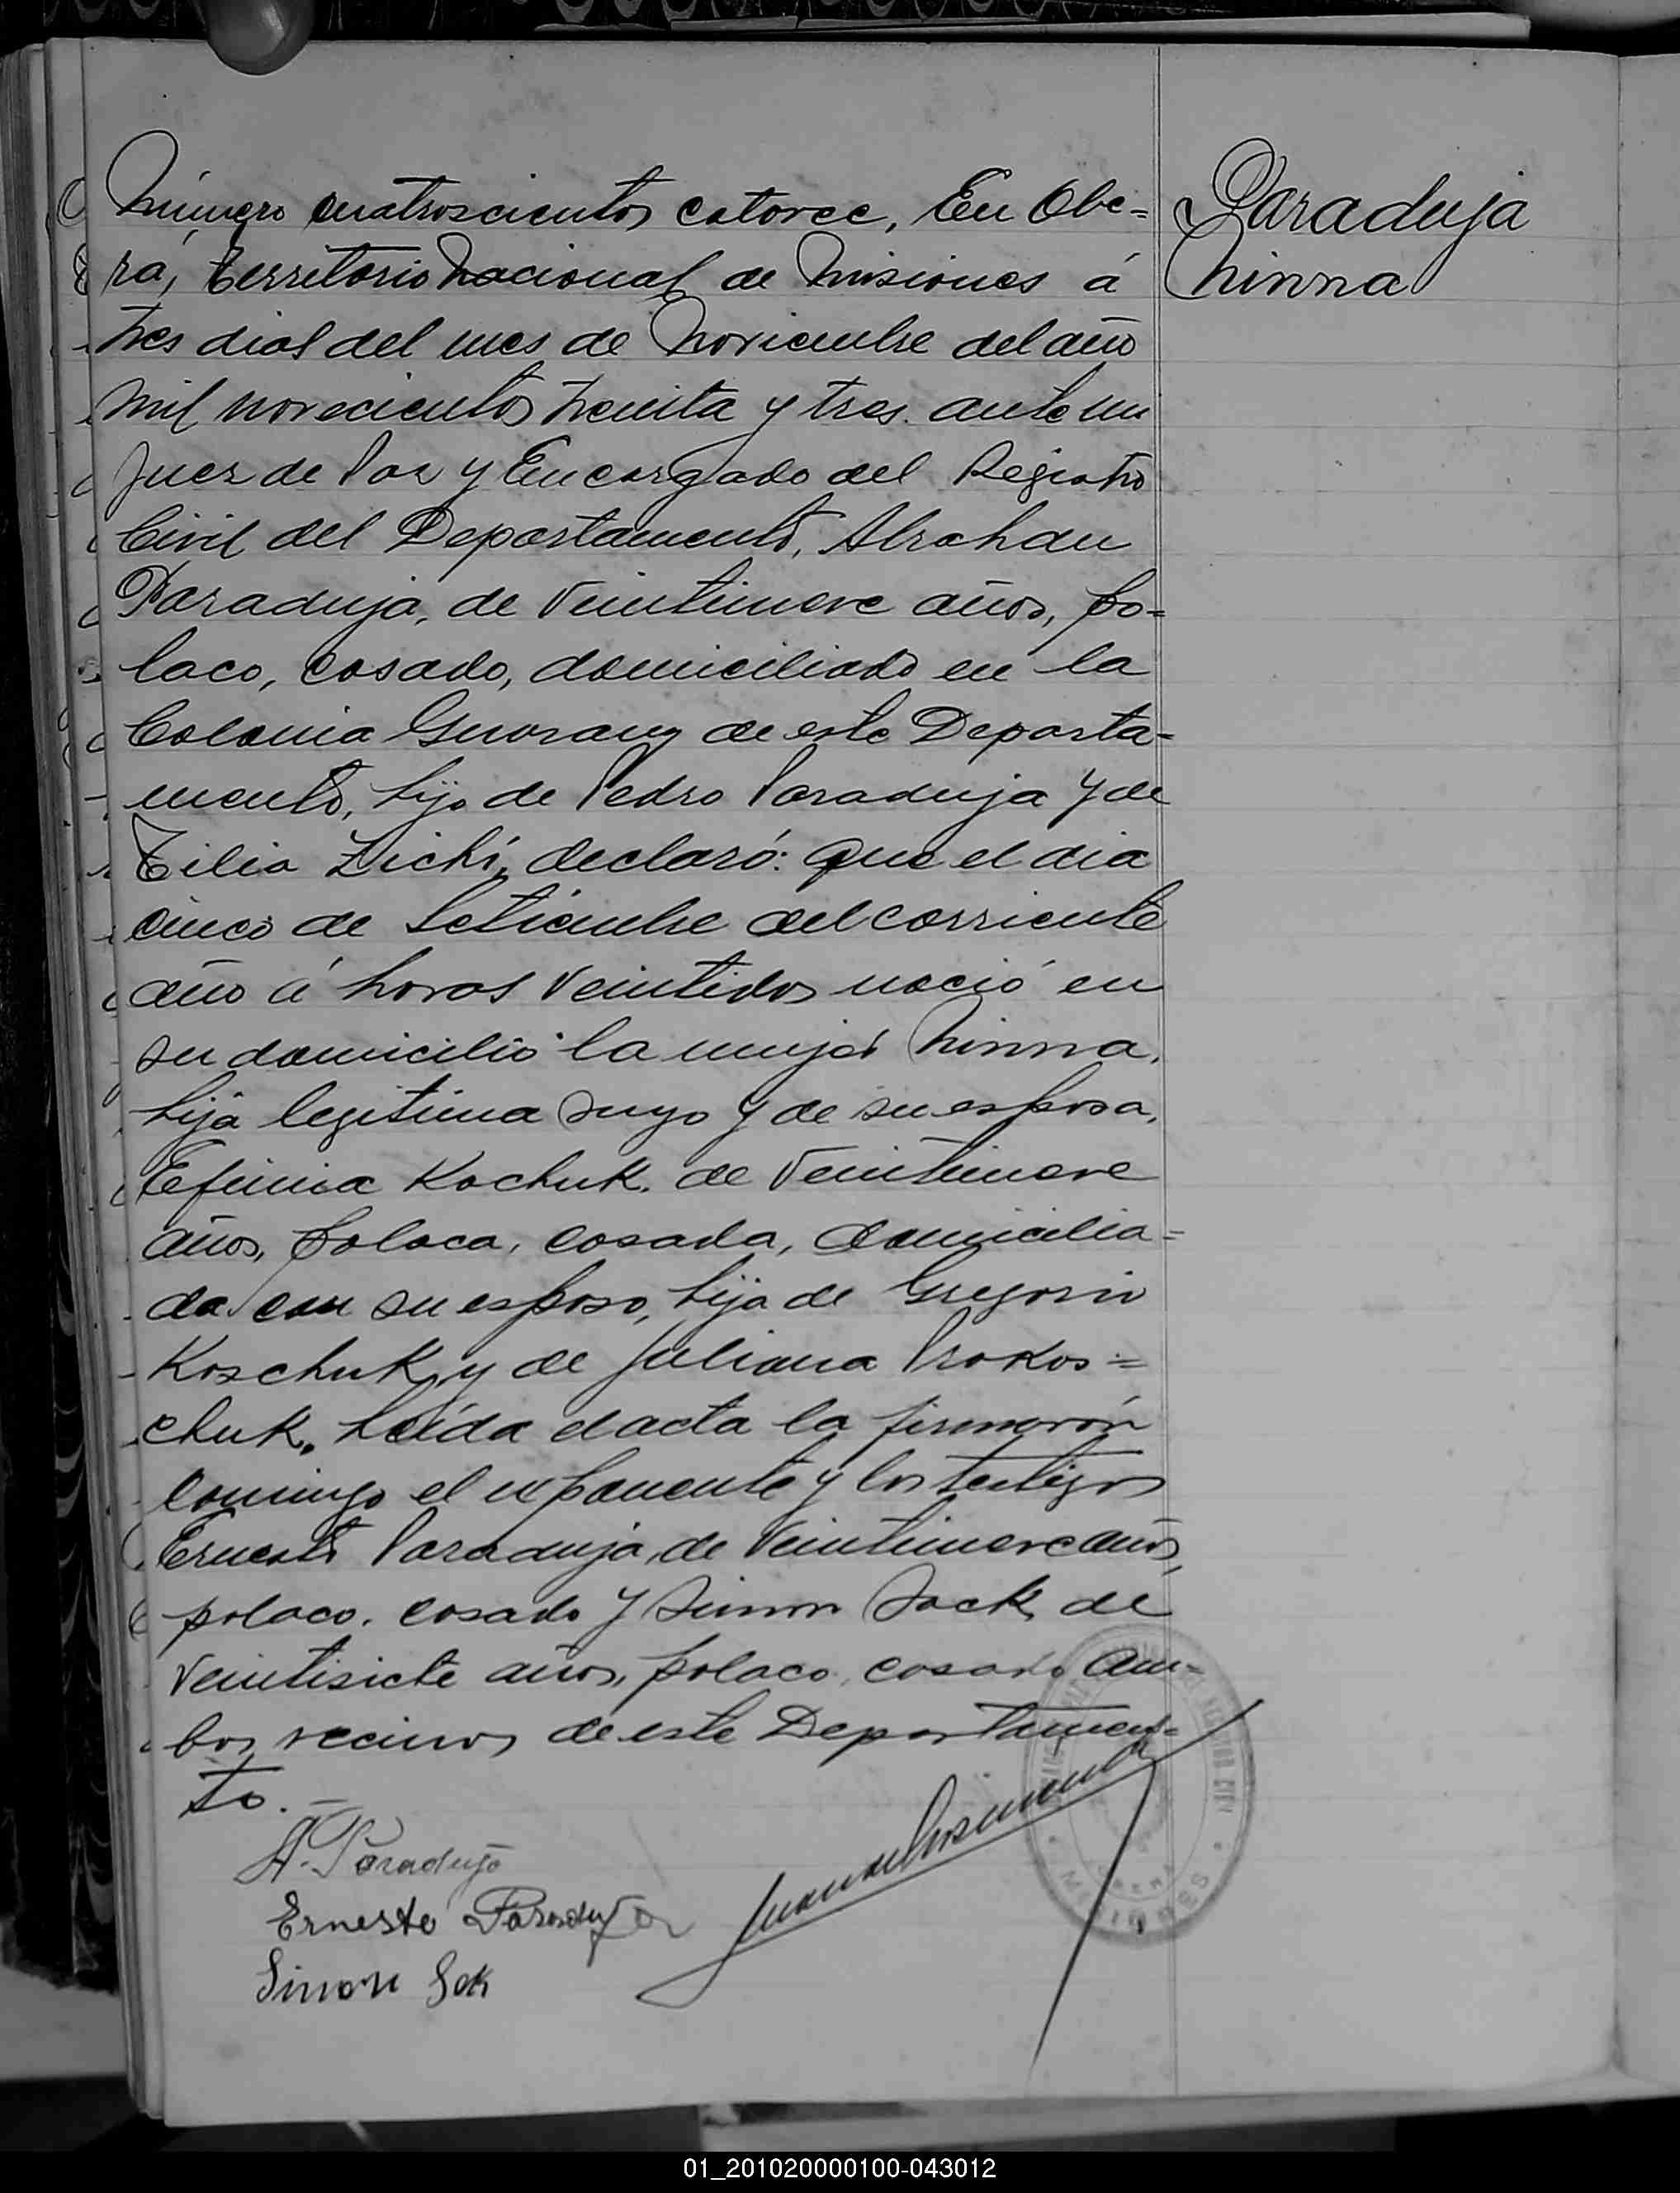 Paraduja
Ninna
Número cuatroscientos catorce, En Obe=
rá, territorio Nacional de Misiones á
tres dias del mes de Noviembre del año
mil novecientos treinta y tres. ante mi
Juez de Paz y Encargado del Registro
Civil del Departamento, Abrahan
Paraduja, de veintinueve años, po=
laco, casado, domiciliado en la
Colonia Guarany de este Departa=
mento, hijo de Pedro Paraduja y de
Tilia Zichi, declaró: Que el dia
cinco de Setiembre del corriente
año á horas veintidos nació en
su domicilio la mujer Ninna,
hija legitima suya y de su esposa,
Efimia Kochuk. de veintinueve
años, polaca, casada, domicilia=
da con su esposo, hija de Gregorio
Koschuk y de Juliana Prokos=
chuk. Leida el acta la firmarón
conmigo el exponente y los testigos
Ernesto Paraduja, de veintinueve años,
polaco. casado y Simon Sack de
veintisiete años, polaco, casado am=
bos vecinos de este Departamen=
to.—
A. Paraduja
Ernesto Paraduja
Simon Sok
MISIONES